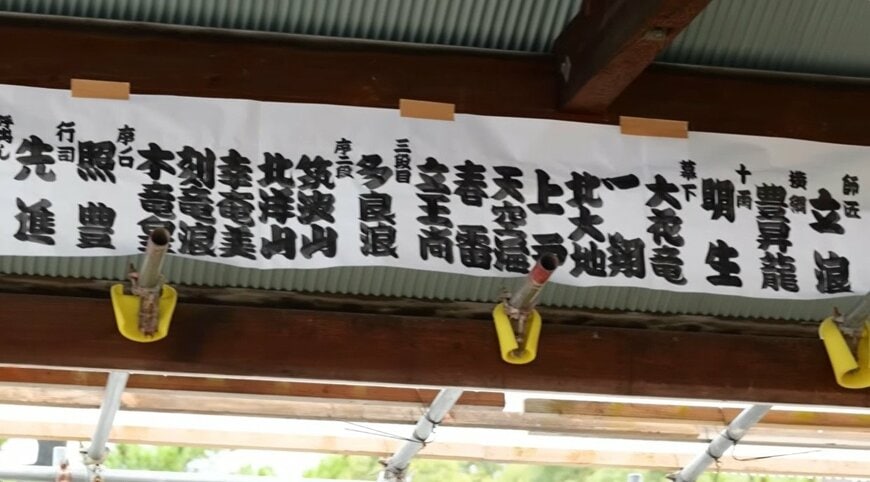 師匠
立浪
横綱
豊昇龍
十両
明生
幕下
大花竜
一翔
北大地
上戸
天空海
春雷
立王尚
三段目
多良浪
序二段
筑波山
北洋山
幸奄美
刻竜浪
木竜皇
序ノ口
行司
照豊
呼出し
先進